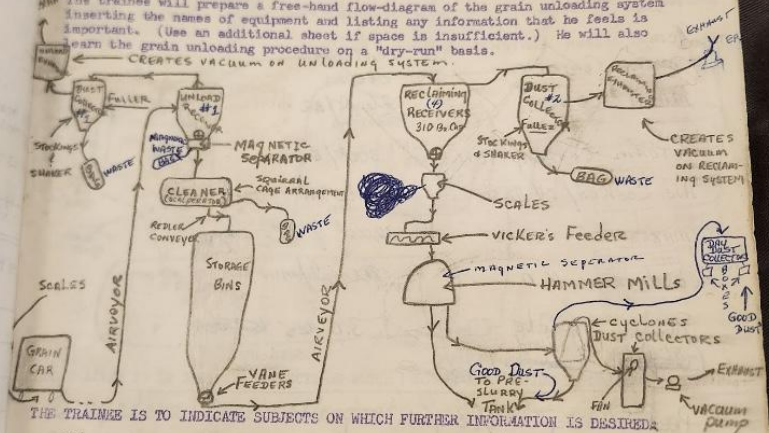 The trainee will prepare a free-hand flow-diagram of the grain unloading system
inserting the names of equipment and listing any information that he feels is
important. (Use an additional sheet if space is insufficient.) He will also
learn the grain unloading procedure on a "dry-run" basis.
CREATES VACUUM ON UNLOADING SYSTEM.
EXHAUST
DUST
COLLECTOR
#1
FULLER
UNLOAD
RECEIVER
#1
STOCKINGS
& SHAKER
WASTE
MAGNETIC
WASTE
MAGNETIC
SEPARATOR
CLEANER
SQUIRRAL
CAGE ARRANGEMENT
WASTE
REDLER
CONVEYOR
STORAGE
BINS
VANE
FEEDERS
SCALES
GRAIN
CAR
AIRVEYOR
AIRVEYOR
RECLAIMING
(4)
RECEIVERS
310 Bu. Cap
DUST
#2
COLLECTOR
Fuller
STOCKINGS
& SHAKER
BAG WASTE
RECLAIMING
EXHAUSTER
CREATES
VACUUM
ON RECLAIM-
ING SYSTEM
SCALES
VICKER'S FEEDER
MAGNETIC SEPERATOR
HAMMER MILLS
DAY
DUST
COLLECTOR
BOXES
GOOD
DUST
CYCLONES
DUST COLLECTORS
GOOD DUST
TO PRE-
SLURRY
TANK
FAN
EXHAUST
VACUUM
PUMP
THE TRAINEE IS TO INDICATE SUBJECTS ON WHICH FURTHER INFORMATION IS DESIRED.